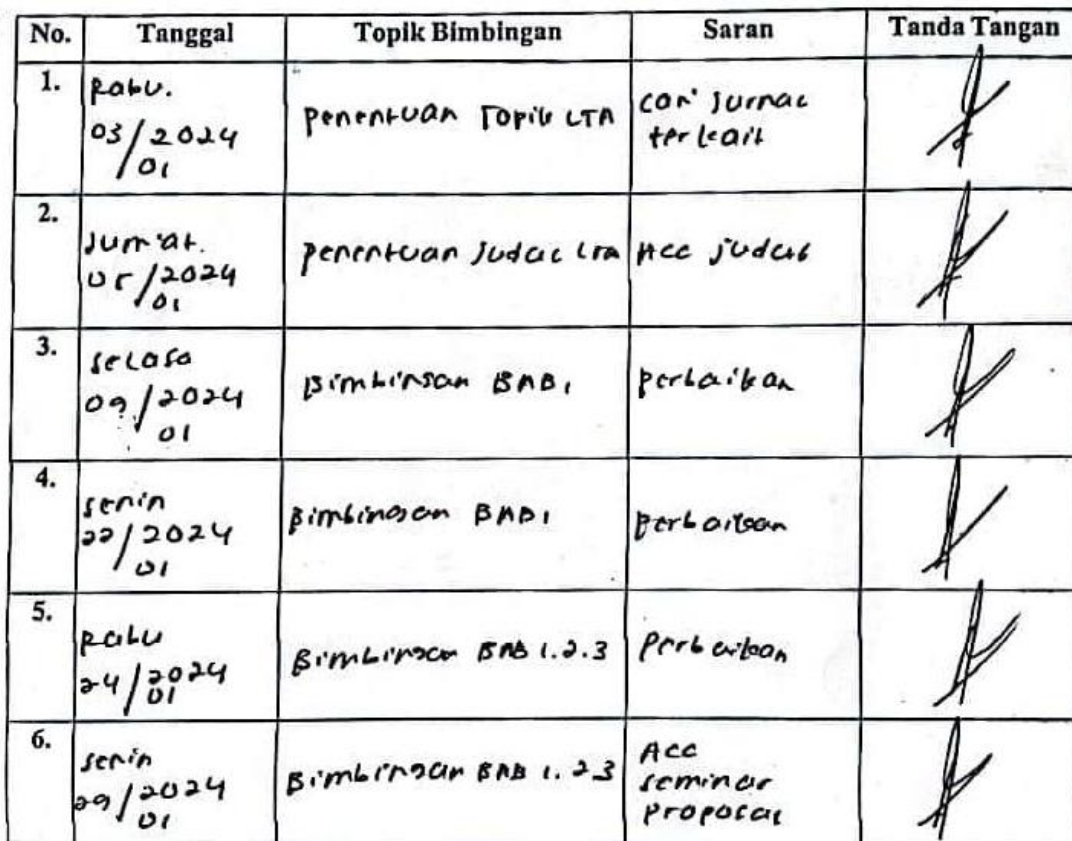 No. Tanggal Topik Bimbingan Saran Tanda Tangan
1. Rabu. 03/2024 01 Penentuan Topik LTA Cari Jurnal terkait
2. Jum'at. 05/2024 01 Penentuan Judul LTA Acc judul
3. Selasa 09/2024 01 Bimbingan BAB 1 Perbaikan
4. Senin 22/2024 01 Bimbingan BAB 1 Perbaikan
5. Rabu 24/2024 01 Bimbingan BAB 1.2.3 Perbaikan
6. Senin 29/2024 01 Bimbingan BAB 1.2.3 Acc seminar proposal